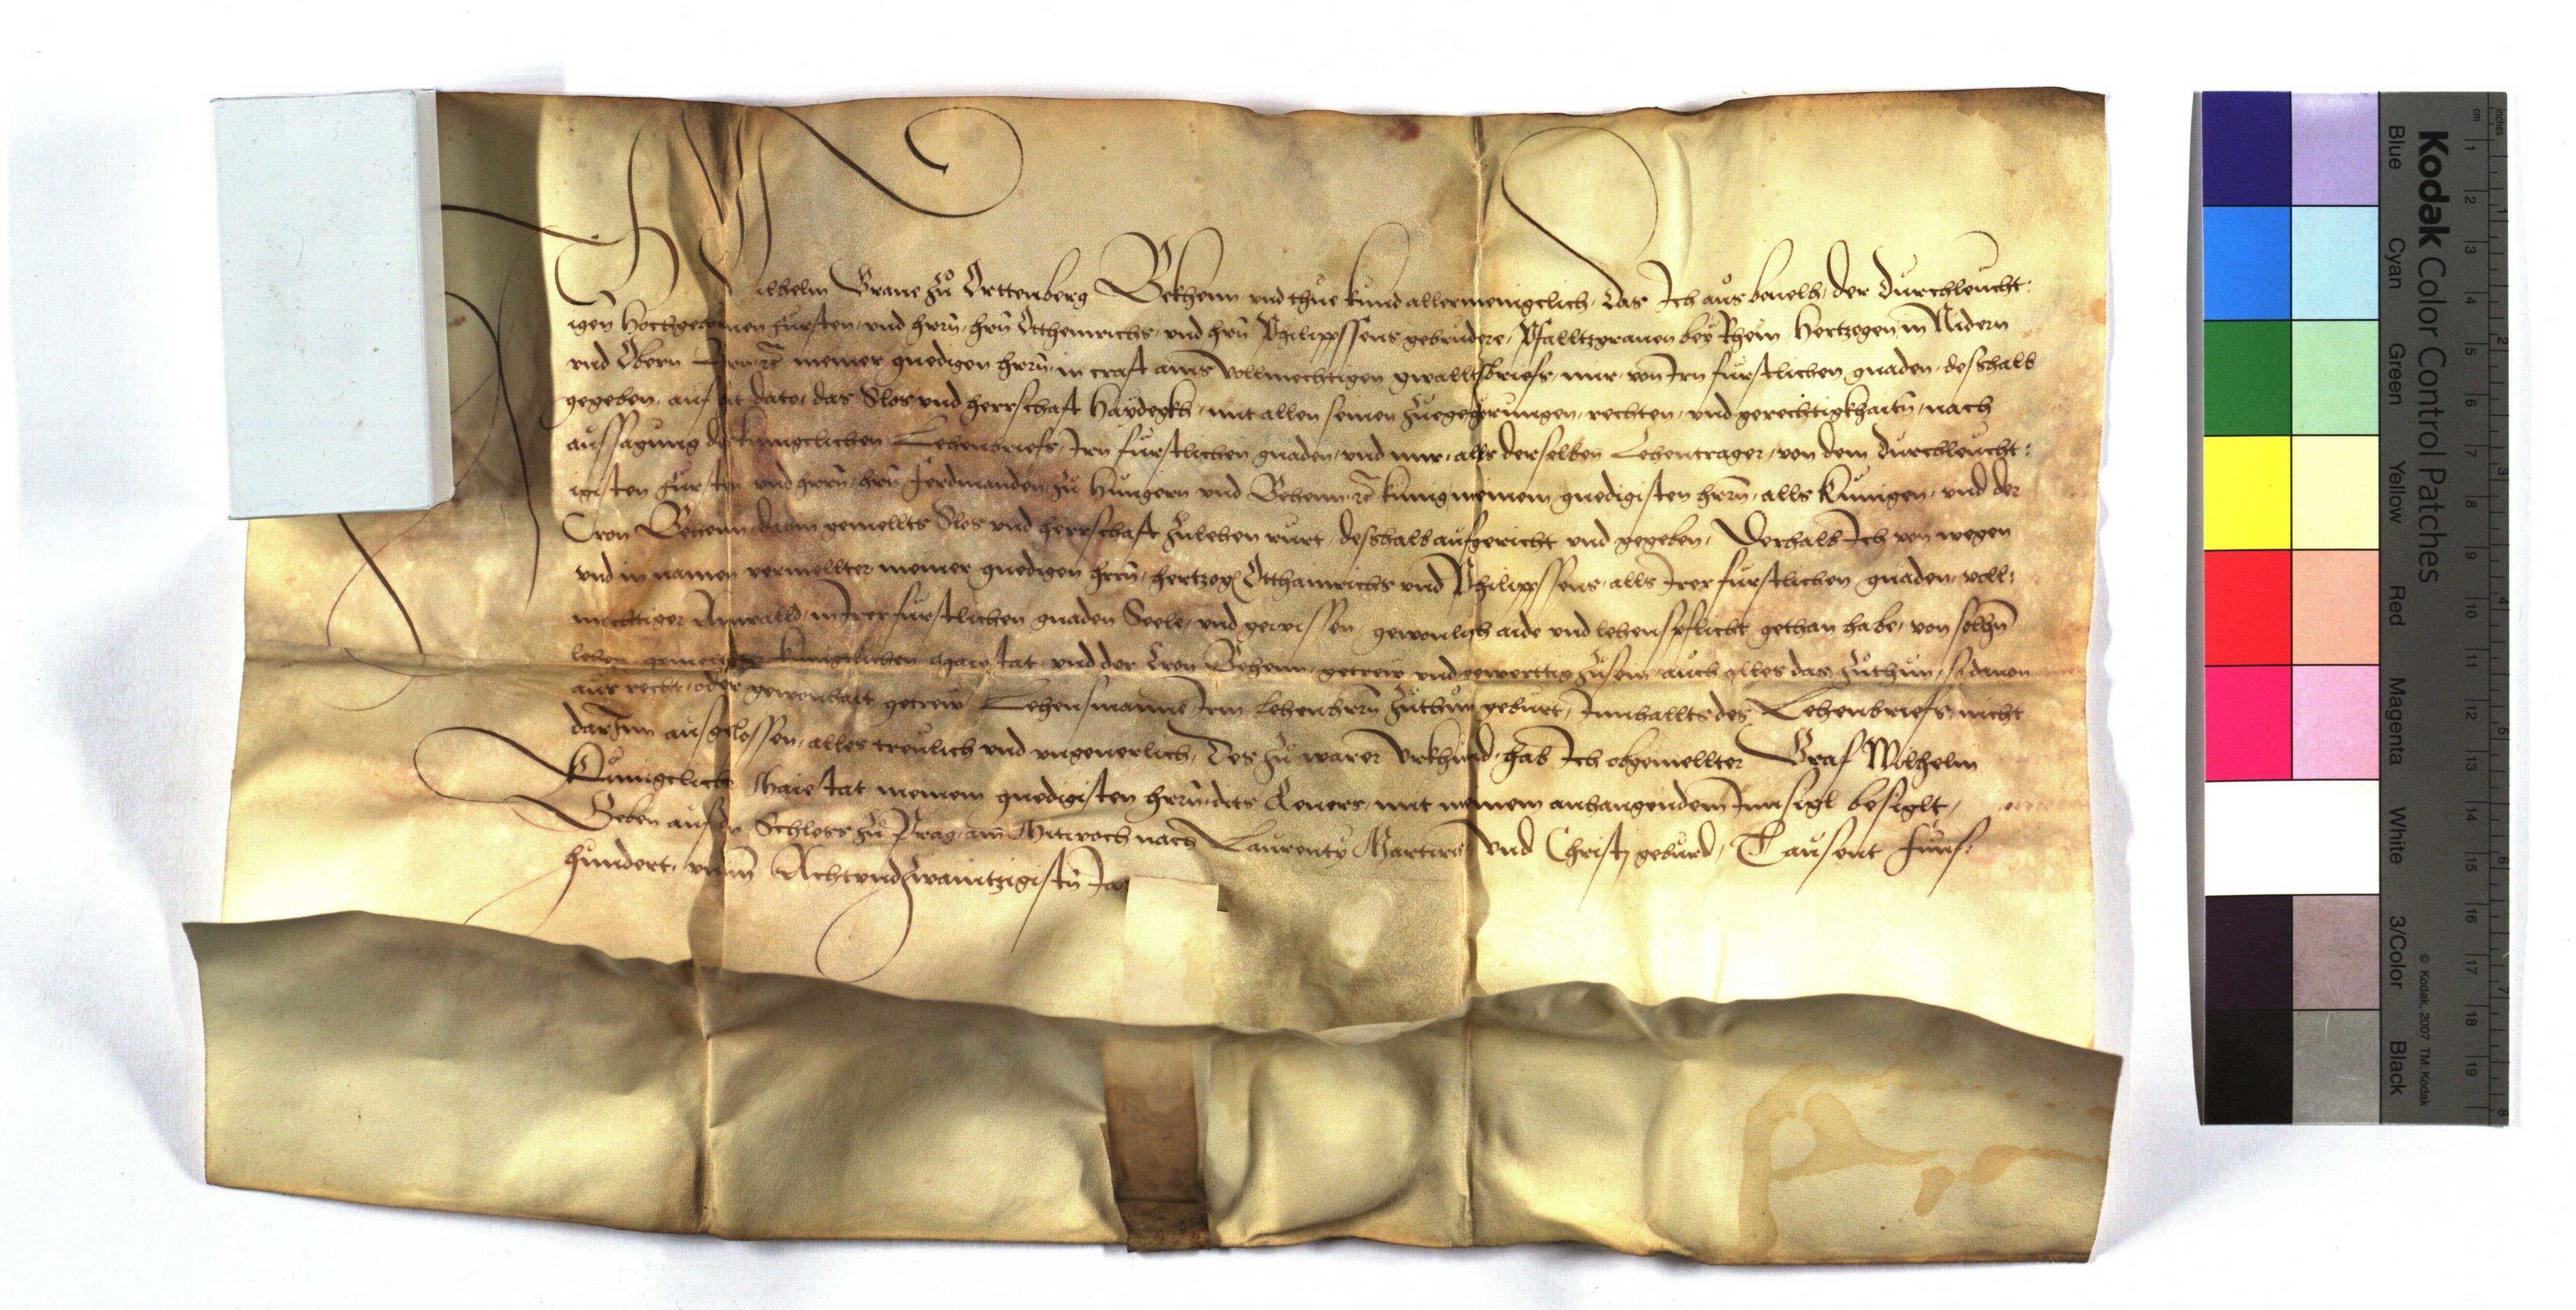 Ich Wilhelm Graue zu Orttenberg Bekhenn vnd thue kund allermenigclich, das Ich aus beuelh, der durchleucht:
igen Hochgebornen Fürsten, vnd herrn, hrn Otthenrichs, vnd hrn Philippssens gebrudere, Pfalltzgrauen bey Rhein Hertzogen in Nidern
vnd Obern Brn rc meiner gnedigen herrn, in craft ains vollmechtigen gwalltsbriefs, mir von Irn furstlichen gnaden, deshalb
gegeben, auf dato, das Slos vnd herrschaft Haydegkh, mit allen seinen zuegehorungen, rechten, vnd gerechtigkhaitn, nach
aussagung des kunigclichen Lehenbriefs, Irn furstlichen gnaden, vnd mir, alls derselben Lehentrager, von dem durchleucht:
igisten Fursten vnd herrn, hrn Ferdinanden, zu Hungern vnd Behem rc kunig meinem gnedigisten herrn, alls Kunigen, vnd der
Cron Behem, dauin gemellts Slos vnd herrschaft zulehen rurt, deshalb aufgericht vnd gegeben, Derhalb Ich von wegen
vnd in namen vermellter meiner gnedigen herrn, hertzog Otthainrichs vnd Philippssens, alls Irer furstlichen gnaden, voll:
mechtiger Anwalld, in Irer furstlichen gnaden Seele, vnd gewissen, gewonlich aide vnd lehenspflicht gethan habe, von solhn
lehen gemellter kunigclichen Maiestat vnd der Cron Behem, getrew vnd gewerttig zusein, auch alles das zuthun, so dauon
aus recht, oder gewonhait getrew Lehensmanne, Irm lehenhern zuthun geburt, Innhallts des Lehenbriefs, nicht
darInn ausgslossen, alles treulich vnd vngeuerlich, Des zu warer vrkhund, hab Ich obgemellter Graf Wilhelm
Kunigclicher Maiestat meinem gnedigisten herrn, dits Reuers, mit meinem anhangendem Innsigl besiglt,
Geben auf dn Schloss zu Prag, am Mitwoch nach Laurenty Martiris vnd Christj geburd, Tausent Funf:
hundert, vnd im Achtundzwaintzigistn Jar
Kodak Color Control Patches
Blue Cyan Green Yellow Red Magenta White 3/Color Black
© Kodak, 2007 TM: Kodak
cm 1 2 3 4 5 6 7 8 9 10 11 12 13 14 15 16 17 18 19
inches 1 2 3 4 5 6 7 8